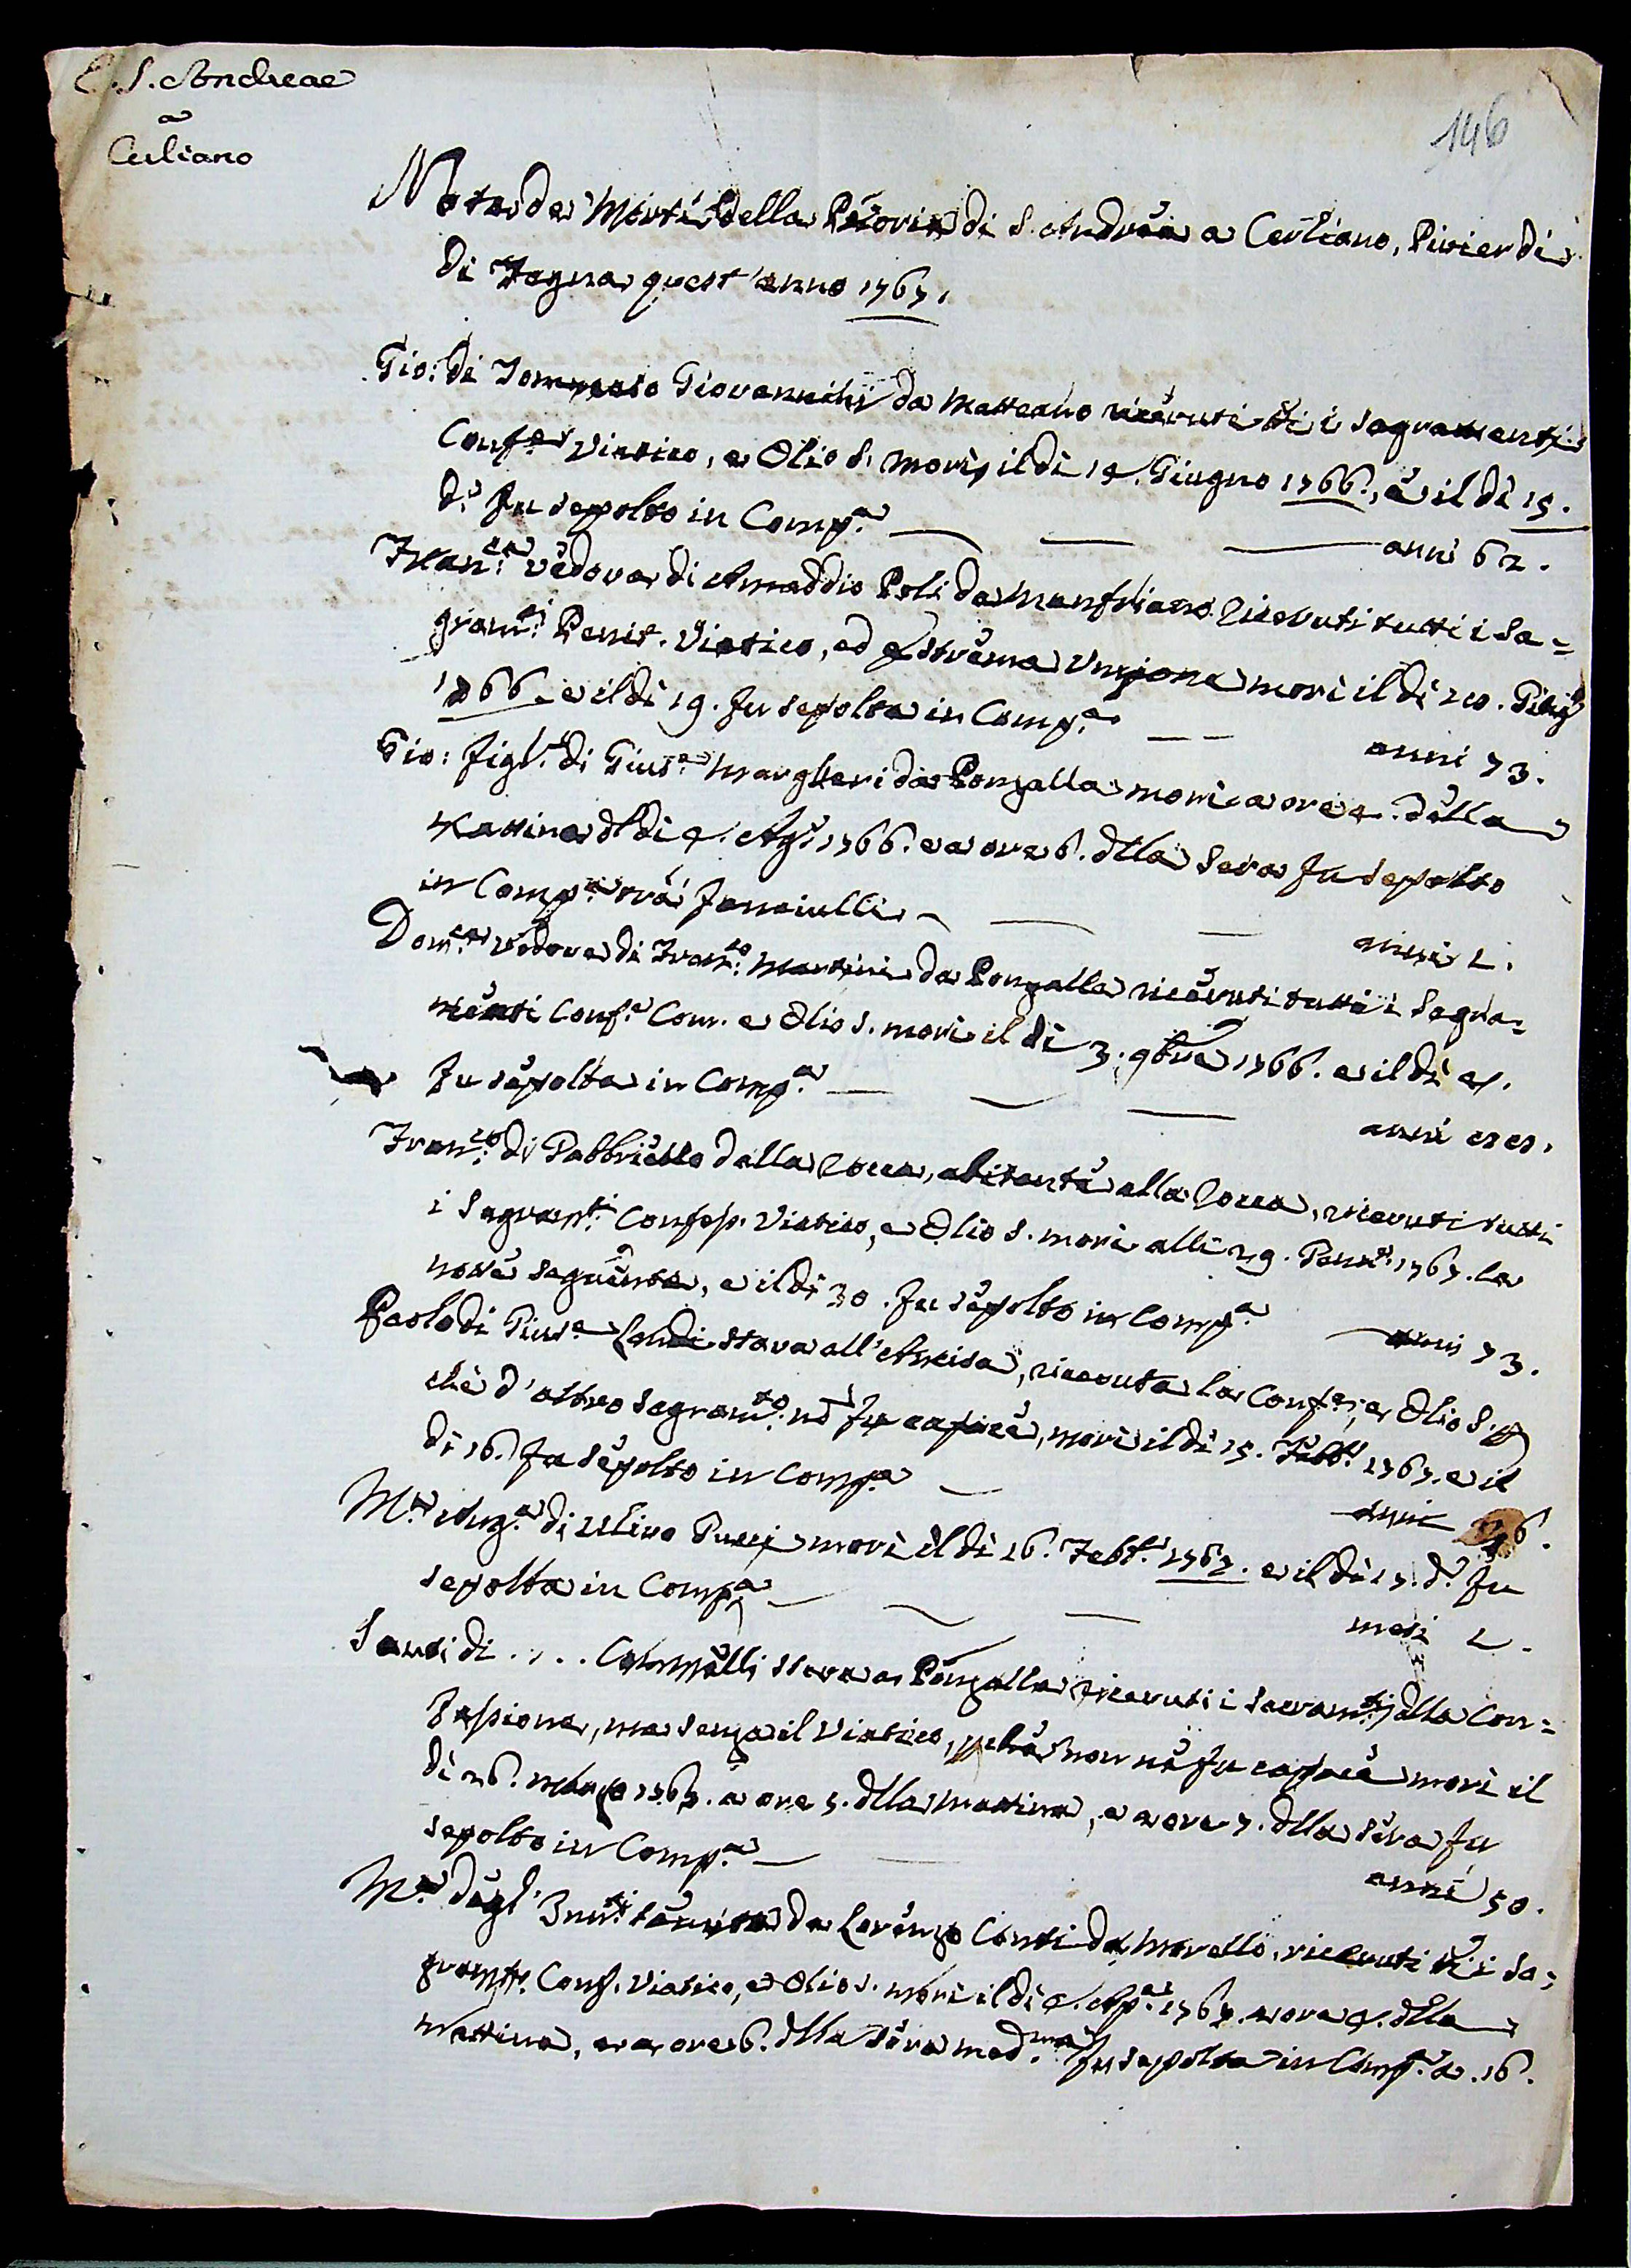 E. S. Andreae
a
Celiano
146
Nota de Morti della Prioria di S. Andrea a Cerliano, Pivier di
di Fagna quest'anno 1767.
Gio: di Tommaso Giovannini da Matteano ricevuti tti i Sagramenti
Conf.e Viatico, e Olio S. morì il dì 14. Giugno 1766., e il dì 15.
d.o fu sepolto in Comp.a anni 62.
Fran.ca vedova di Amaddio Poli da Manfriano ricevuti tutti i Sa=
gram.ti Penit. Viatico, ed Estrema Unzione morì il dì Giug.o
1766. e il dì 19. fu sepolta in Comp.a anni 73.
Gio: figl.o di Gius.e Margheri da Ponzalla morì a ore 4. della
mattina dl dì 4. Ag.o 1766. e a ore 6. dlla sera fu sepolto
in Comp.a trà fanciulli anni 2.
Dom.ca vedova di Fran.co Martini da Ponzalla ricevuti tutti i Sagra=
menti Conf.e Com. e Olio S. morì il dì 3. 9bre 1766. e il dì 4.
fu sepolta in Comp.a anni
Fran.co di Gabbriello dalla Rocca, abitante alla Rocca, ricevuti tutti
i Sagram.ti Confess. Viatico, e Olio S. morì alli 29. Genn.o 1767. la
notte seguente, e il dì 30. fu sepolto in Comp.a anni 73.
Paolo di Gius.e Landi stava all'Ancisa, ricevuta la Conf.e, e Olio S. p
chè d'altro Sagram.to nō fu capace, morì il dì 15. Febb.o 1767. e il
dì 16. fu sepolto in Comp.a anni 6.
M.a Ang.a di Ulivo Pucci morì il dì 16. Febb.o 1767. e il dì 17. d.o fu
sepolta in Comp.a mesi 2.
Santi di .... stava a Ponzalla ricevuti i Sacram.ti dlla Con=
fessione, ma senza il Viatico, pchè non nè fu capace morì il
dì 26. Marzo 1767. a ore 5. dlla mattina, e a ore 7. dlla sera fu
sepolto in Comp.a anni 50.
M.a degl'Inn.ti tenuta da Lorenzo Conti da Morello, ricevuti tti i Sa=
gram.ti Conf. Viatico, e Olio S. morì il dì 4. Ap.e 1767. a ore 4. dlla
mattina, e a ore 6. dlla sera med.ma fu sepolta in Comp.a a. 16.